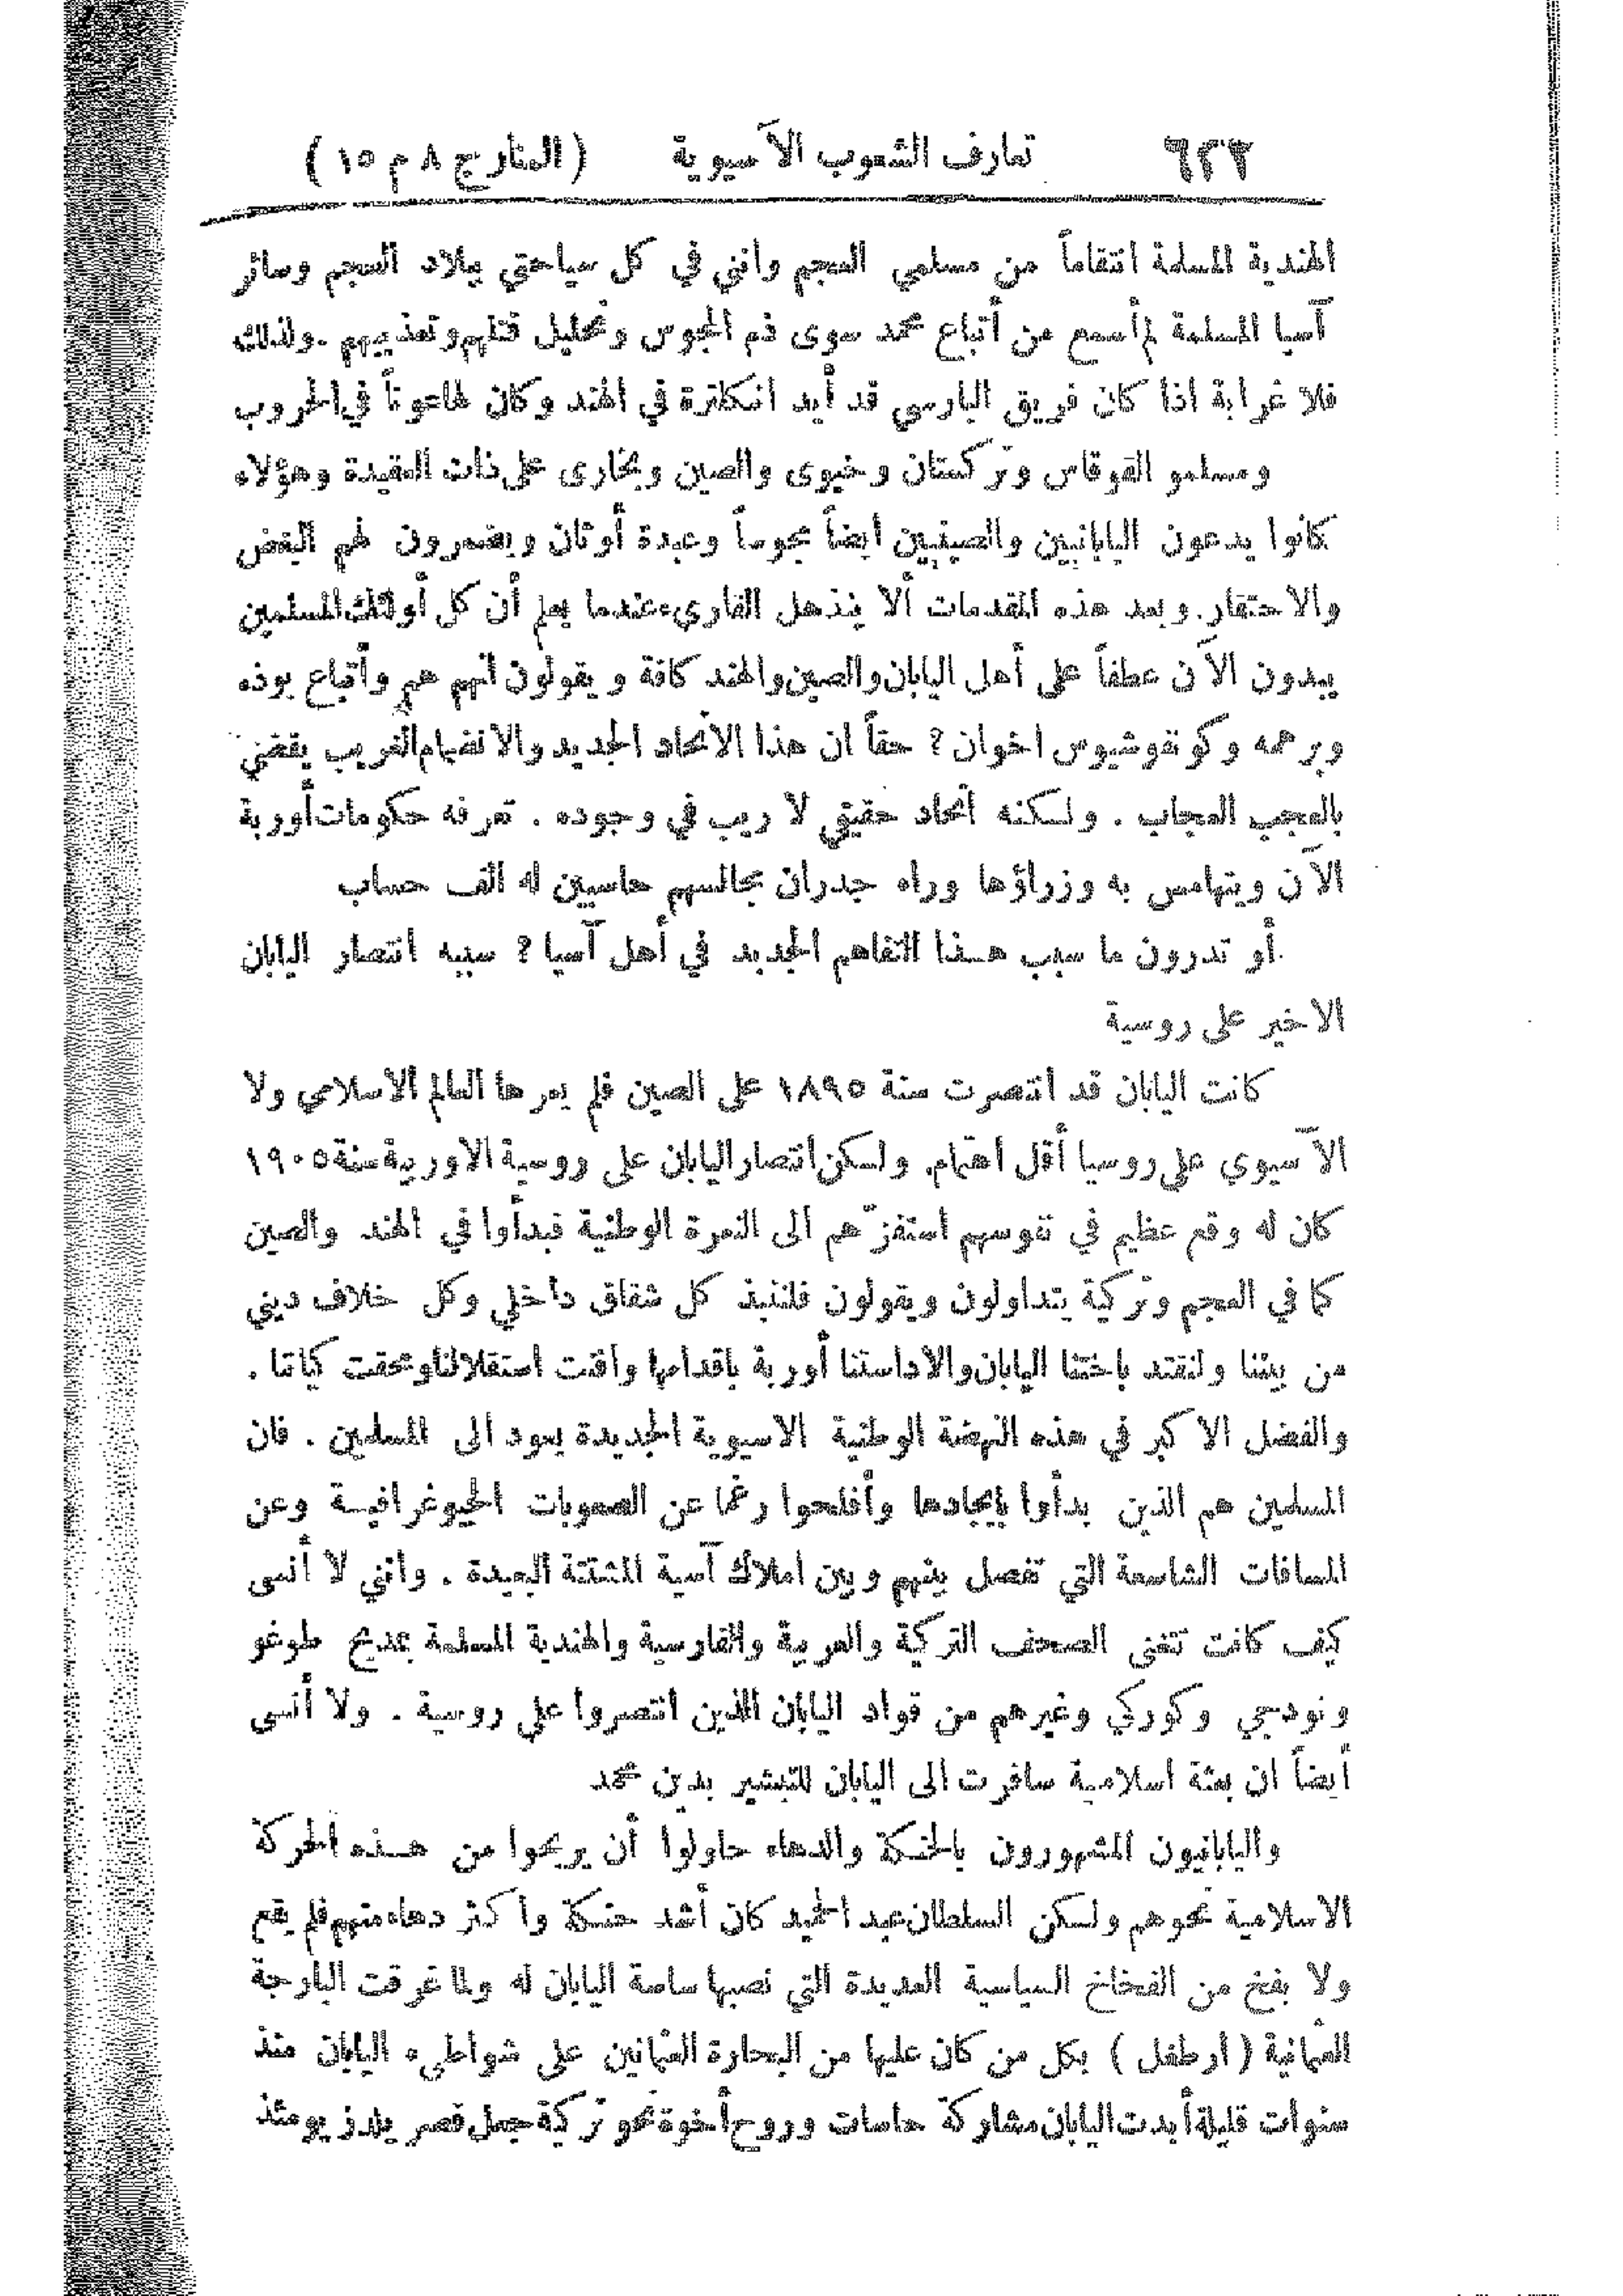 ٦٢٢ تعارف الشعوب الآسيوية (المنار ج ٨ م ١٥)
الهندية المسلمة انتقاماً من مسلمي العجم وانني في كل سياحتي ببلاد العجم وسائر
آسيا المسلمة لم أسمع من أتباع محمد سوى ذم المجوس وتحليل قتلهم وتعذيبهم . ولذلك
فلا غرابة اذا كان فريق البارسي قد أيد انكلترة في الهند وكان لها عوناً في الحروب
ومسلمو القوقاس وتركستان وخيوى والصين وبخارى على ذات العقيدة وهؤلاء
كانوا يدعون اليابانيين والصينيين أيضاً مجوساً وعبدة أوثان ويضمرون لهم البغض
والاحتقار. وبعد هذه المقدمات ألا ينذهل القاريء عندما يعلم أن كل أولئك المسلمين
يبدون الآن عطفاً على أهل اليابان والصين والهند كافة ويقولون انهم هم وأتباع بوذه
وبرهمه وكونفوشيوس اخوان ؟ حقاً ان هذا الاتحاد الجديد والانضمام الغريب يقضي
بالعجب العجاب . ولكنه اتحاد حقيقي لا ريب في وجوده . تعرفه حكومات أوربة
الآن ويتهامس به وزراؤها وراء جدران مجالسهم حاسبين له الف حساب
أو تدرون ما سبب هذا التفاهم الجديد في أهل آسيا ؟ سببه انتصار اليابان
الاخير على روسية
كانت اليابان قد انتصرت سنة ١٨٩٥ على الصين فلم يعرها العالم الاسلامي ولا
الآسيوي على روسيا أقل اهتمام. ولكن انتصار اليابان على روسية الاوربية سنة ١٩٠٥
كان له وقع عظيم في نفوسهم استفزّهم الى النعرة الوطنية فبدأوا في الهند والصين
كما في العجم وتركية يتداولون ويقولون فلننبذ كل شقاق داخلي وكل خلاف ديني
من بيننا ولنقتد باختنا اليابان والا داستنا أوربة باقدامها وأفنت استقلالنا ومحقت كياننا .
والفضل الاكبر في هذه النهضة الوطنية الاسيوية الجديدة يعود الى المسلمين . فان
المسلمين هم الذين بدأوا بايجادها وأفلحوا رغما عن الصعوبات الجيوغرافية وعن
المسافات الشاسعة التي تفصل بينهم وبين املاك آسية المشتتة البعيدة . وانني لا أنسى
كيف كانت تتغنى الصحف التركية والعربية والفارسية والهندية المسلمة بمديح طوغو
ونودجي وكوركي وغيرهم من قواد اليابان الذين انتصروا على روسية . ولا أنسى
أيضاً ان بعثة اسلامية سافرت الى اليابان للتبشير بدين محمد
واليابانيون المشهورون بالحنكة والدهاء حاولوا أن يربحوا من هذه الحركة
الاسلامية نحوهم ولكن السلطان عبد الحميد كان أشد حنكة وأكثر دهاء منهم فلم يقع
ولا بفخ من الفخاخ السياسية العديدة التي نصبها ساسة اليابان له ولما غرقت البارجة
العثمانية ( أرطغل ) بكل من كان عليها من البحارة العثمانين على شواطيء اليابان منذ
سنوات قليلة أبدت اليابان مشاركة حاسات وروح أخوة نحو تركية جعل قصر يلدز يومئذ